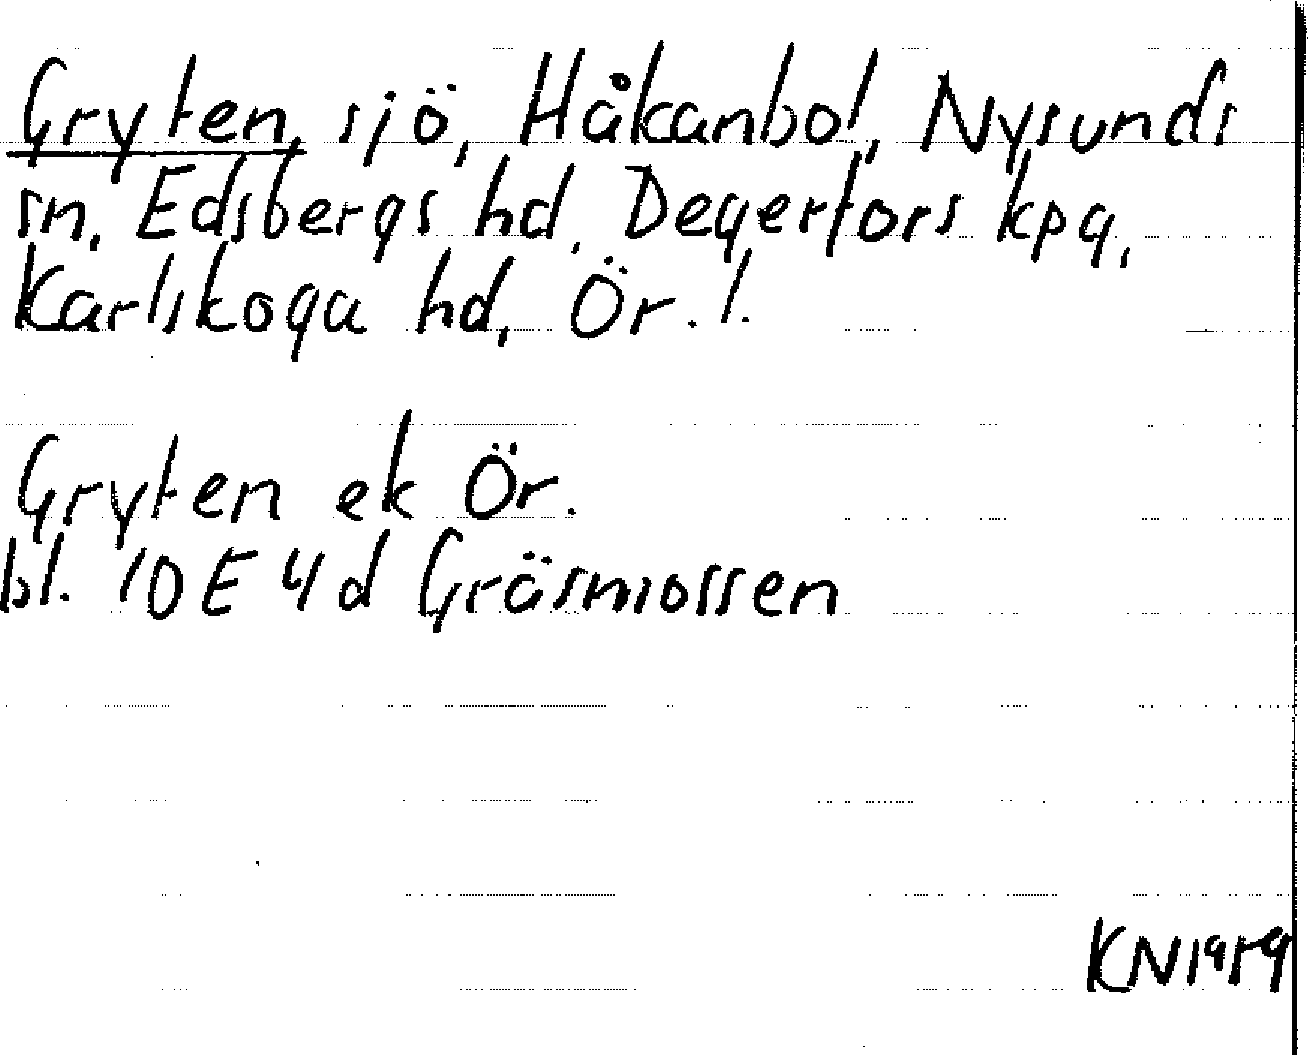 Gryten, sjö, Håkanbol, Nysunds
sn, Edsbergs hd, Degerfors kpg,
Karlskoga hd, Ör. l.
Gryten ek Ör.
bl. 10 E 4d Gräsmossen
KN 1959